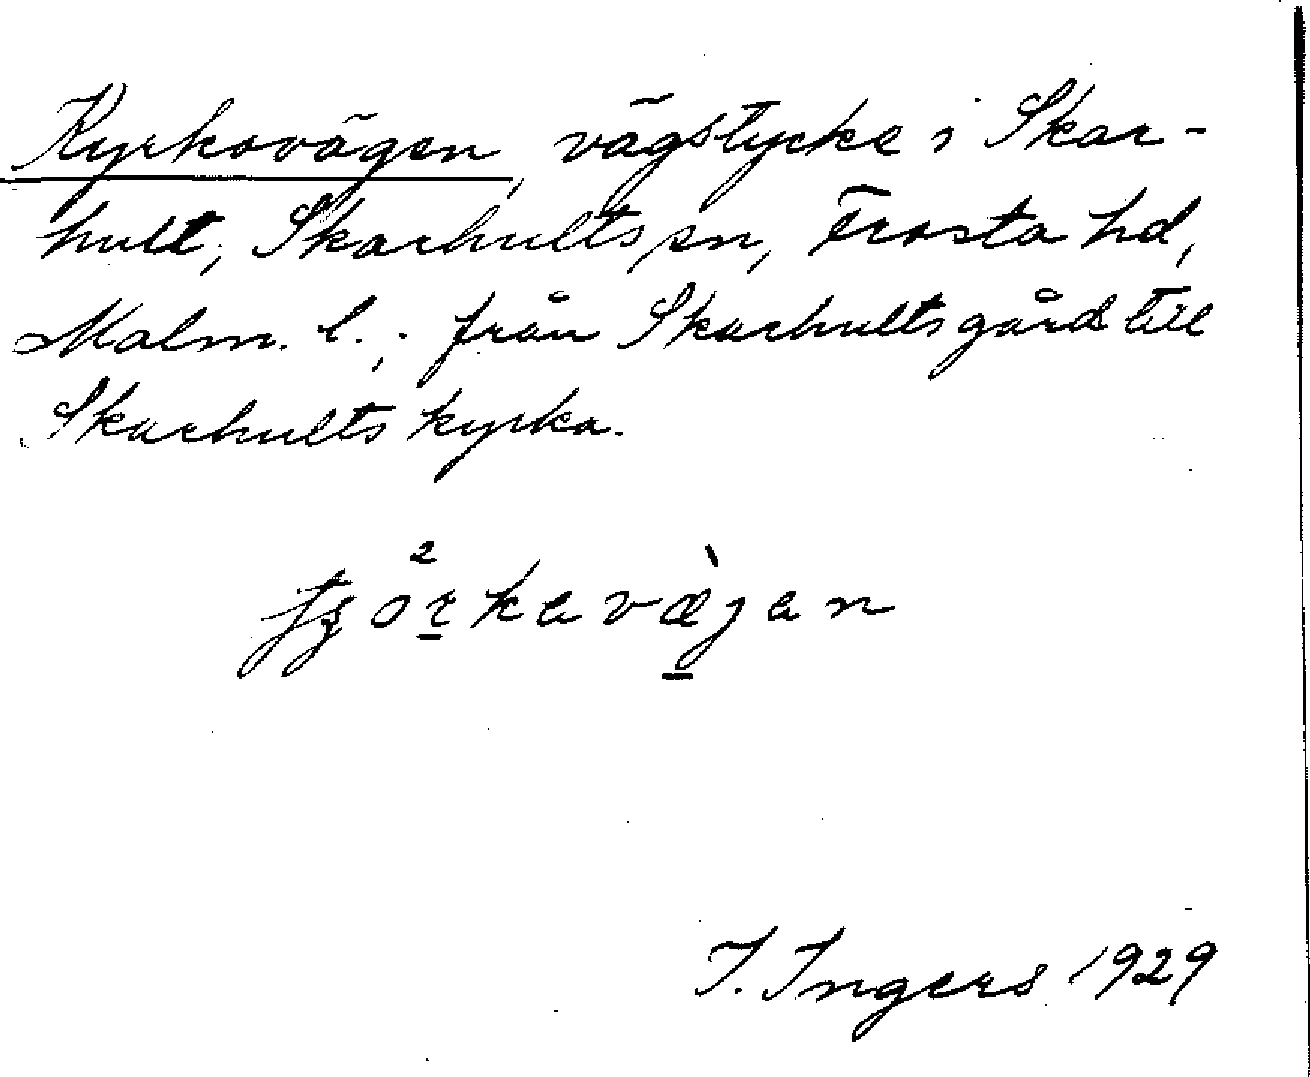 Kyrkovägen, vägstycke i Skar-
hult, Skarhults sn, Frosta hd,
Malm. l.; från Skarhultsgård till
Skarhults kyrka.
I. Ingers 1929